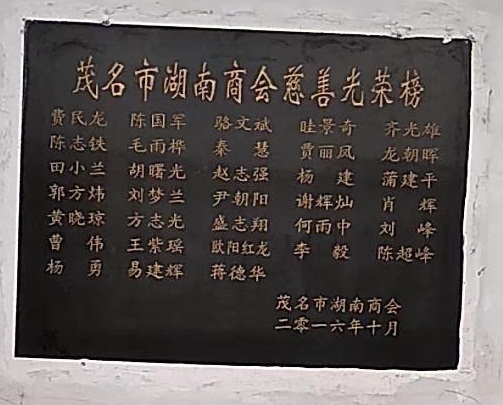 茂名市湖南商会慈善光荣榜
费民龙 陈国军 骆文斌 眭景奇 齐光雄
陈志铁 毛雨桦 秦慧 贾丽凤 龙朝晖
田小兰 胡曙光 赵志强 杨建 蒲建平
郭方炜 刘梦兰 尹朝阳 谢辉灿 肖辉
黄晓琼 方志光 盛志翔 何雨中 刘峰
曹伟 王紫瑶 欧阳红龙 李毅 陈超峰
杨勇 易建辉 蒋德华
茂名市湖南商会
二零一六年十月